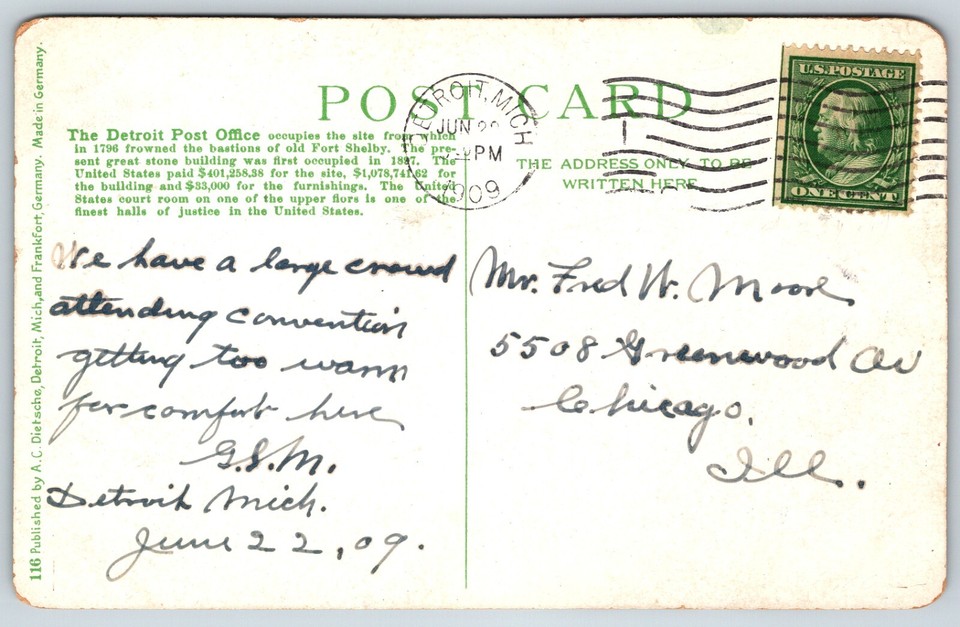 POST CARD
The Detroit Post Office occupies the site from which
in 1796 frowned the bastions of old Fort Shelby. The pre-
sent great stone building was first occupied in 1897. The
United States paid $401,258.38 for the site, $1,078,741.62 for
the building and $33,000 for the furnishings. The United
States court room on one of the upper flors is one of the
finest halls of justice in the United States.
DETROIT, MICH
JUN 22
PM
1909
THE ADDRESS ONLY TO BE
WRITTEN HERE
U.S. POSTAGE
ONE CENT
We have a large crowd
attending convention
getting too warm
for comfort here
G.S.M.
Detroit Mich.
June 22, 09.
Mr. Fred W. Moore
5508 Greenwood Av
Chicago.
Ill.
116 Published by A.C. Dietsche, Detroit, Mich, and Frankfort, Germany. Made in Germany.